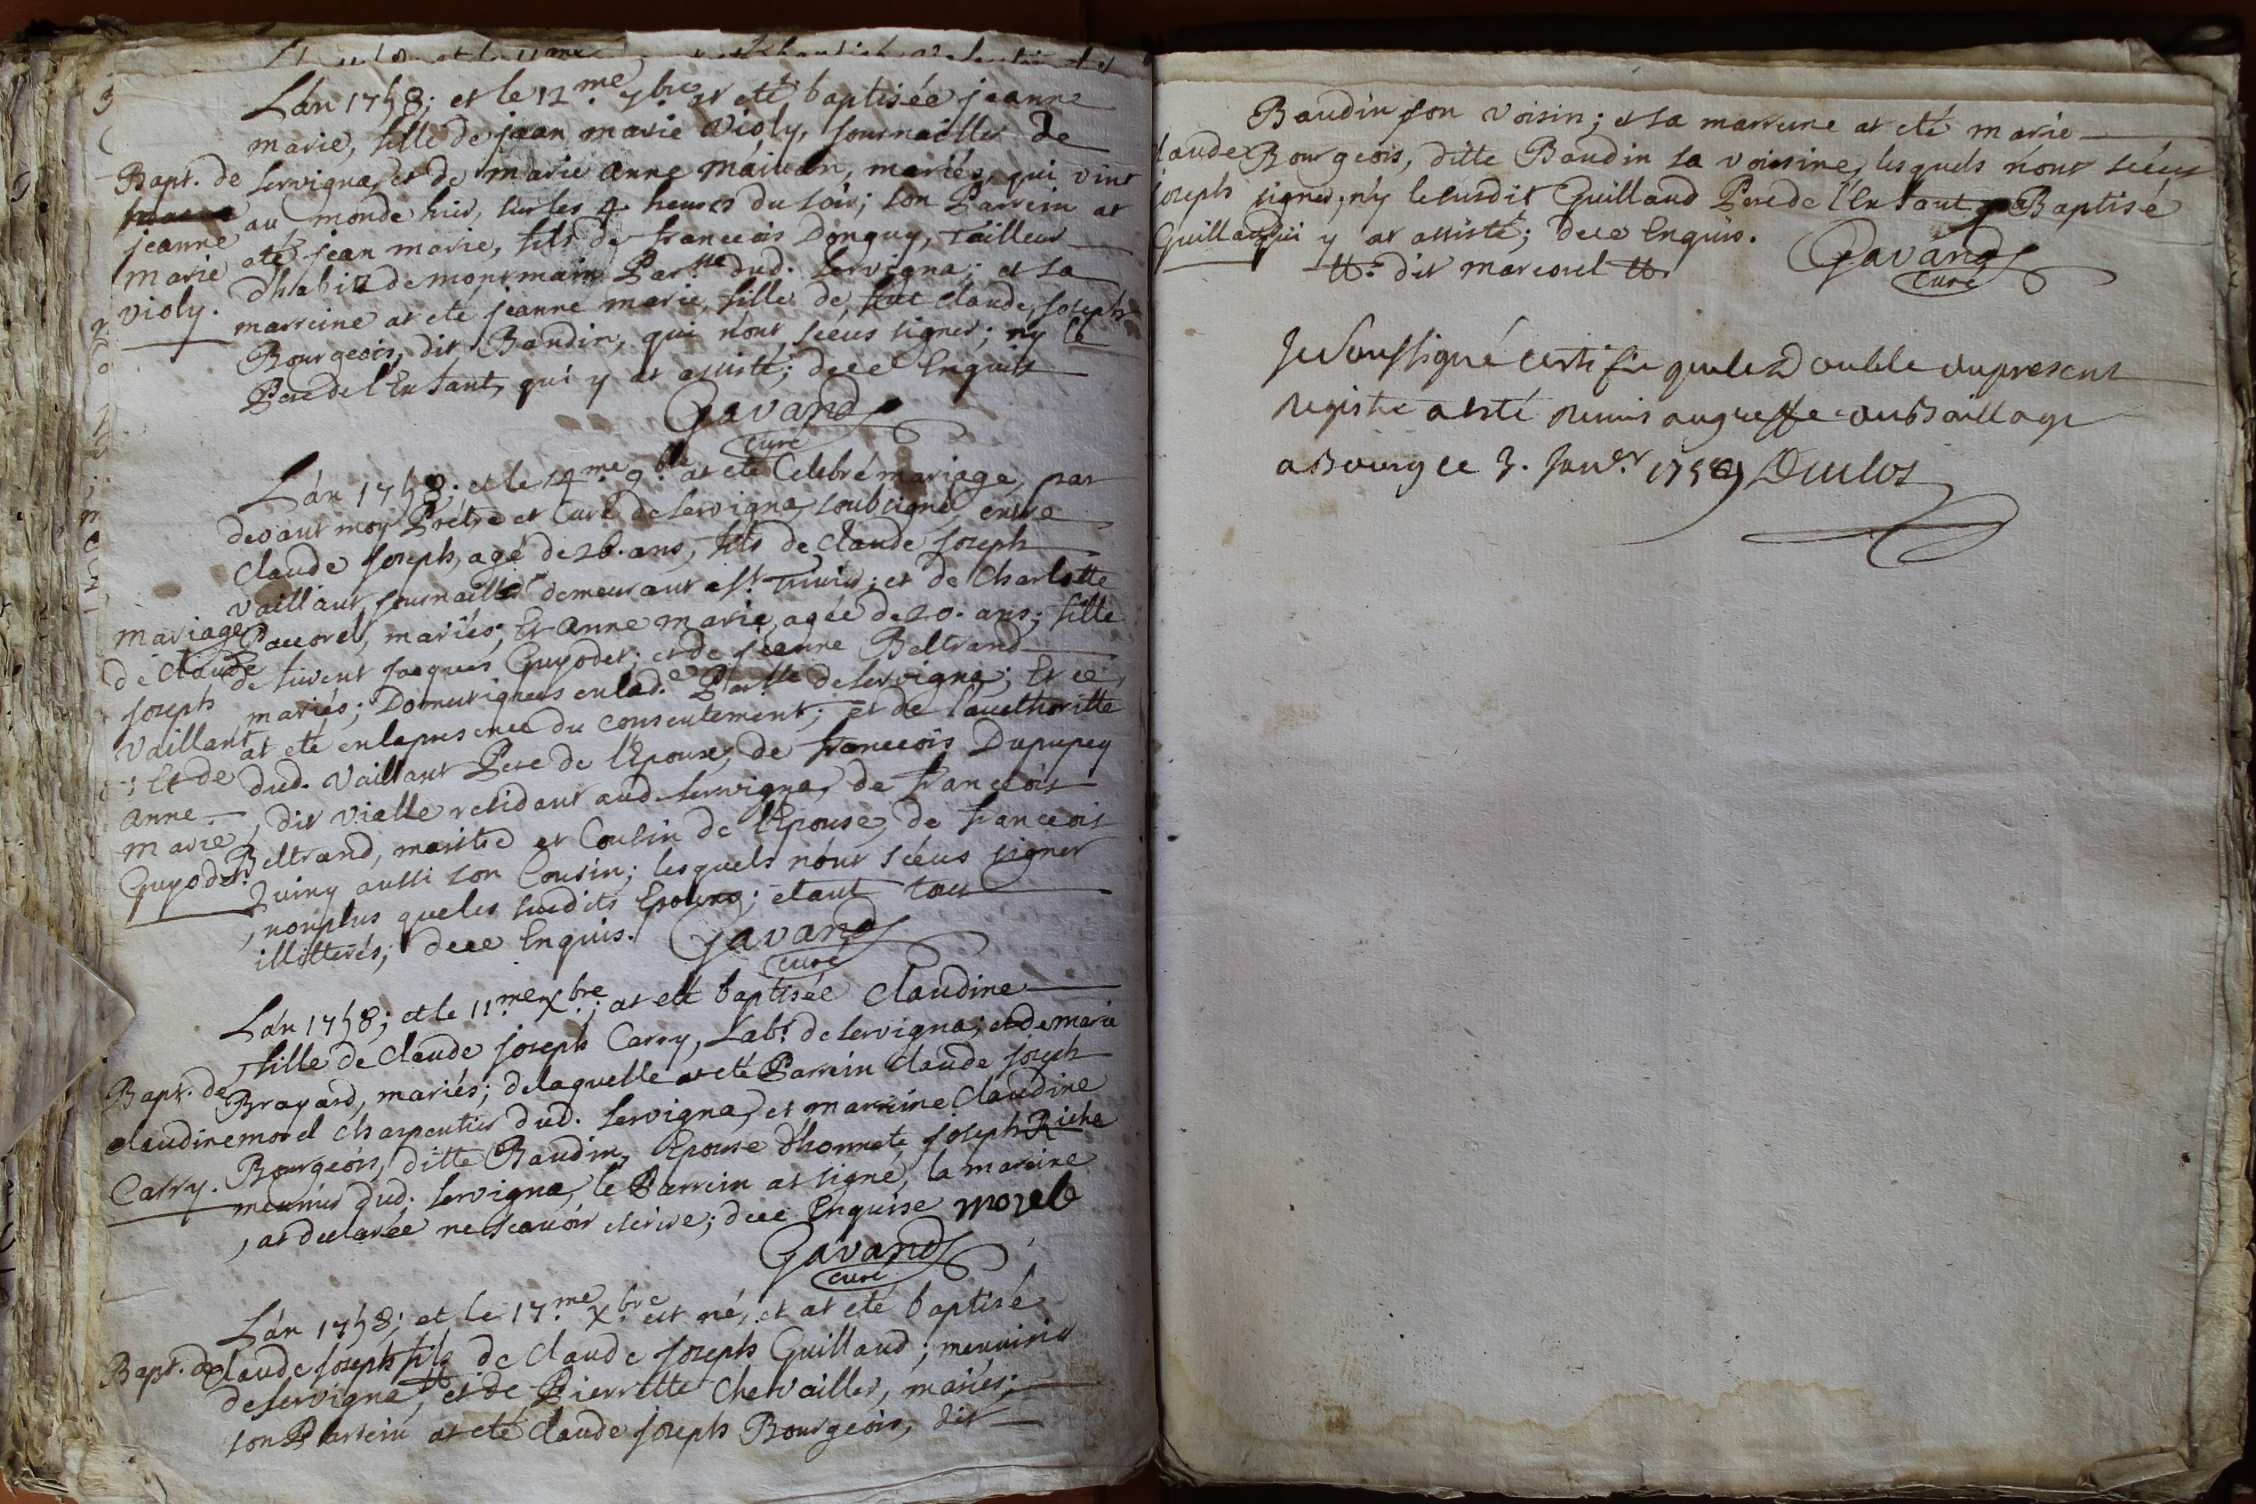 L'án 1758; et le 12.me 7.bre at eté baptisée jeanne
marie, fille de jean marie violy, journailler de
Servigna, et de marie anne mairan, mariés, qui vint
au monde hier, sur les 4. heures du soir; son Parrein at
eté jean marie, fils de francois Donguy, Tailleur
d'habit de montmain Par.sse dud. Servigna; et sa
marreine at eté jeanne marie, fille de feu claude joseph
Bourgeois, dit Baudin, qui n'ont sceus signer; ny le
Pere de l'Enfant, qui y at assisté; de ce Enquis
Gavand
curé
Bapt. de
jeanne
marie
violy.
L'án 1758; et le 14.me 9.bre at eté Celebré mariage par
devant moy Prétre et Curé de Servigna soubsigné, entre
claude joseph, agé de 26. ans, fils de claude joseph
vaillant, journailler demeurant a S.t Trivier; et de Charlotte
Paccorel, mariés; Et anne marie, agée de 20. ans; fille
de fuient jaques Guyodet; et de jeanne Beltrand
mariés; Domestiques en lad.e Par.sse de Servigna; Et ce
at eté en la presence du consentement; et de l'aucthoritté
dud. vaillant Pere de l'Epoux, de francois Dupupey
, dit vialle residant aud. Servigna, de francois
Beltrand, maistre et Cousin de l'Epouse, de francois
Juiny aussi son Cousin; lesquels n'ont scéus signer
, non plus que les susdits Epoux; étant tous
illitterés; de ce Enquis.
Gavand
curé
mariage
de claude
joseph
vaillant
; Et de
anne
marie
Guyodet.
L'án 1758; et le 11.me X.bre; at eté baptisée claudine
, fille de claude joseph Carry, Lab.r de Servigna; et de marie
Brayard, mariés; de laquelle at eté Parrein claude joseph
morel charpentier dud. Servigna, et marreine Claudine
Bourgeois, ditte Baudin, Epouse d'honnete joseph Riche
meunier dud. Servigna, le Parrein at signé, la mareine
, at declarée ne scavoir escrire; de ce Enquise morel
Gavand
curé
Bapt. de
claudine
Carry.
L'án 1758; et le 17.me X.bre est né, et at eté baptisé
claude joseph fils de claude joseph Guillaud; meunier
de Servigna #, et de Pierrette Chevailler, mariés;
son Parrein at eté claude joseph Bourgeois, dit
Bapt. de
Baudin son voisin; et sa marreine at eté marie
Bourgeois, ditte Baudin sa voisine, lesquels n'ont scéus
signer; n'y le susdit Guillaud Pere de l'Enfant Baptisé
qui y at assisté; de ce Enquis.
#. dit marcorel #
Gavand
curé
claude
joseph
Guillaud
Je Soussigné certifie que le Double du present
Registre a esté remis au greffe du Baillage
a Bourg ce 3. Janv.er 1759 Duclos